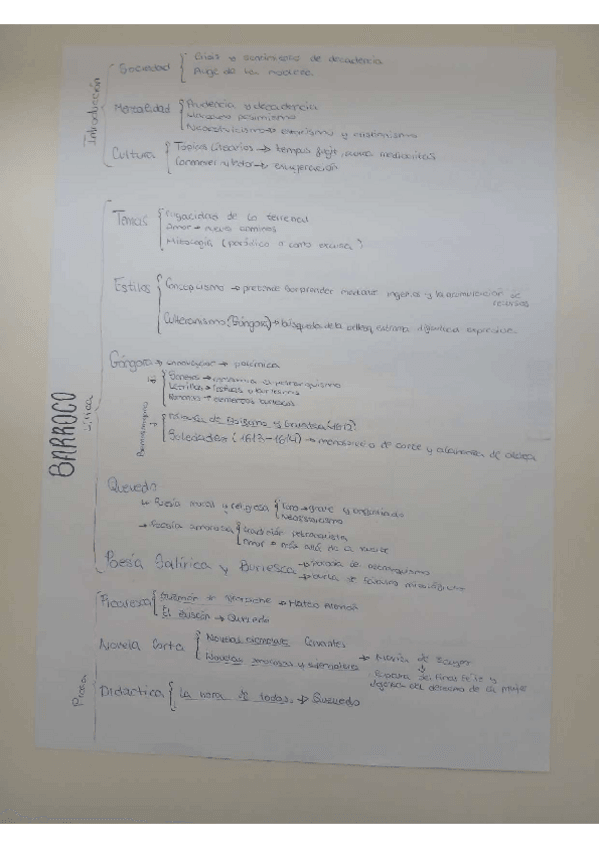 BARROCO
Introducción
Sociedad Crisis → sentimiento de decadencia
Auge de la nobleza.
Mentalidad → decadencia
pesimismo
Neoestoicismo → y
Cultura Tópicos literarios → tempus fugit, aurea mediocritas
Conmover al lector → exageración
Lírica
Temas Fugacidad de lo terrenal
Amor → nuevos caminos
Mitología (paródico o como excusa)
Estilos Conceptismo → pretende sorprender mediante ingenio y la acumulación de recursos
Culteranismo (Góngora) → búsqueda de la belleza extrema, dificultad expresiva.
Góngora → → polémica
Sonetos → petrarquismo
Letrillas →
Romances → elementos burlescos
Fábula de Polifemo y Galatea (1612)
Soledades (1613-1614) → menosprecio de corte y alabanza de aldea
Quevedo
→ Poesía moral y religiosa Tono → grave y
Neoestoicismo
→ Poesía amorosa Tradición petrarquista
Amor → más allá de la muerte
Poesía Satírica y Burlesca → Parodia de petrarquismo
→ burla de fábulas mitológicas
Prosa
Picaresca Guzmán de Alfarache → Mateo Alemán
El Buscón → Quevedo
Novela Corta Novelas ejemplares Cervantes
Novelas amorosas y ejemplares → María de Zayas
defensa del derecho de la mujer
Didáctica La hora de todos. → Quevedo